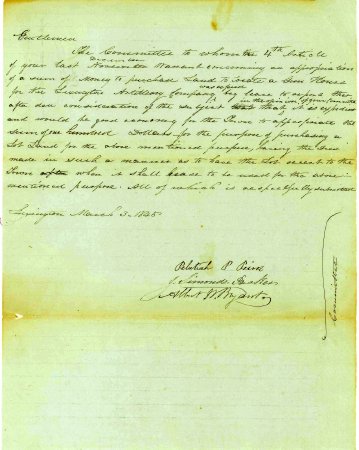 Gentlemen
The Committee to whom the 4th Article
of your last November Warrant concerning an appropriation
of a sum of Money to purchase Land to locate a Gun House
for the Lexington Artillery Company was refered beg leave to report that
after due consideration of the subject in the opinion of your Committee that it is expedient
and would be good economy for the Town to appropriate the
sum of one hundred Dollars for the purpose of purchasing a
Lot Land for the above mentioned purpose, having the Deed
made in such a manner as to have the Lot revert to the
Town when it shall cease to be used for the above
mentioned purpose. All of which is respectfully submitted
Lexington March 3. 1845
P. Peirce
Simonds
Albert W. Bryant
Committee